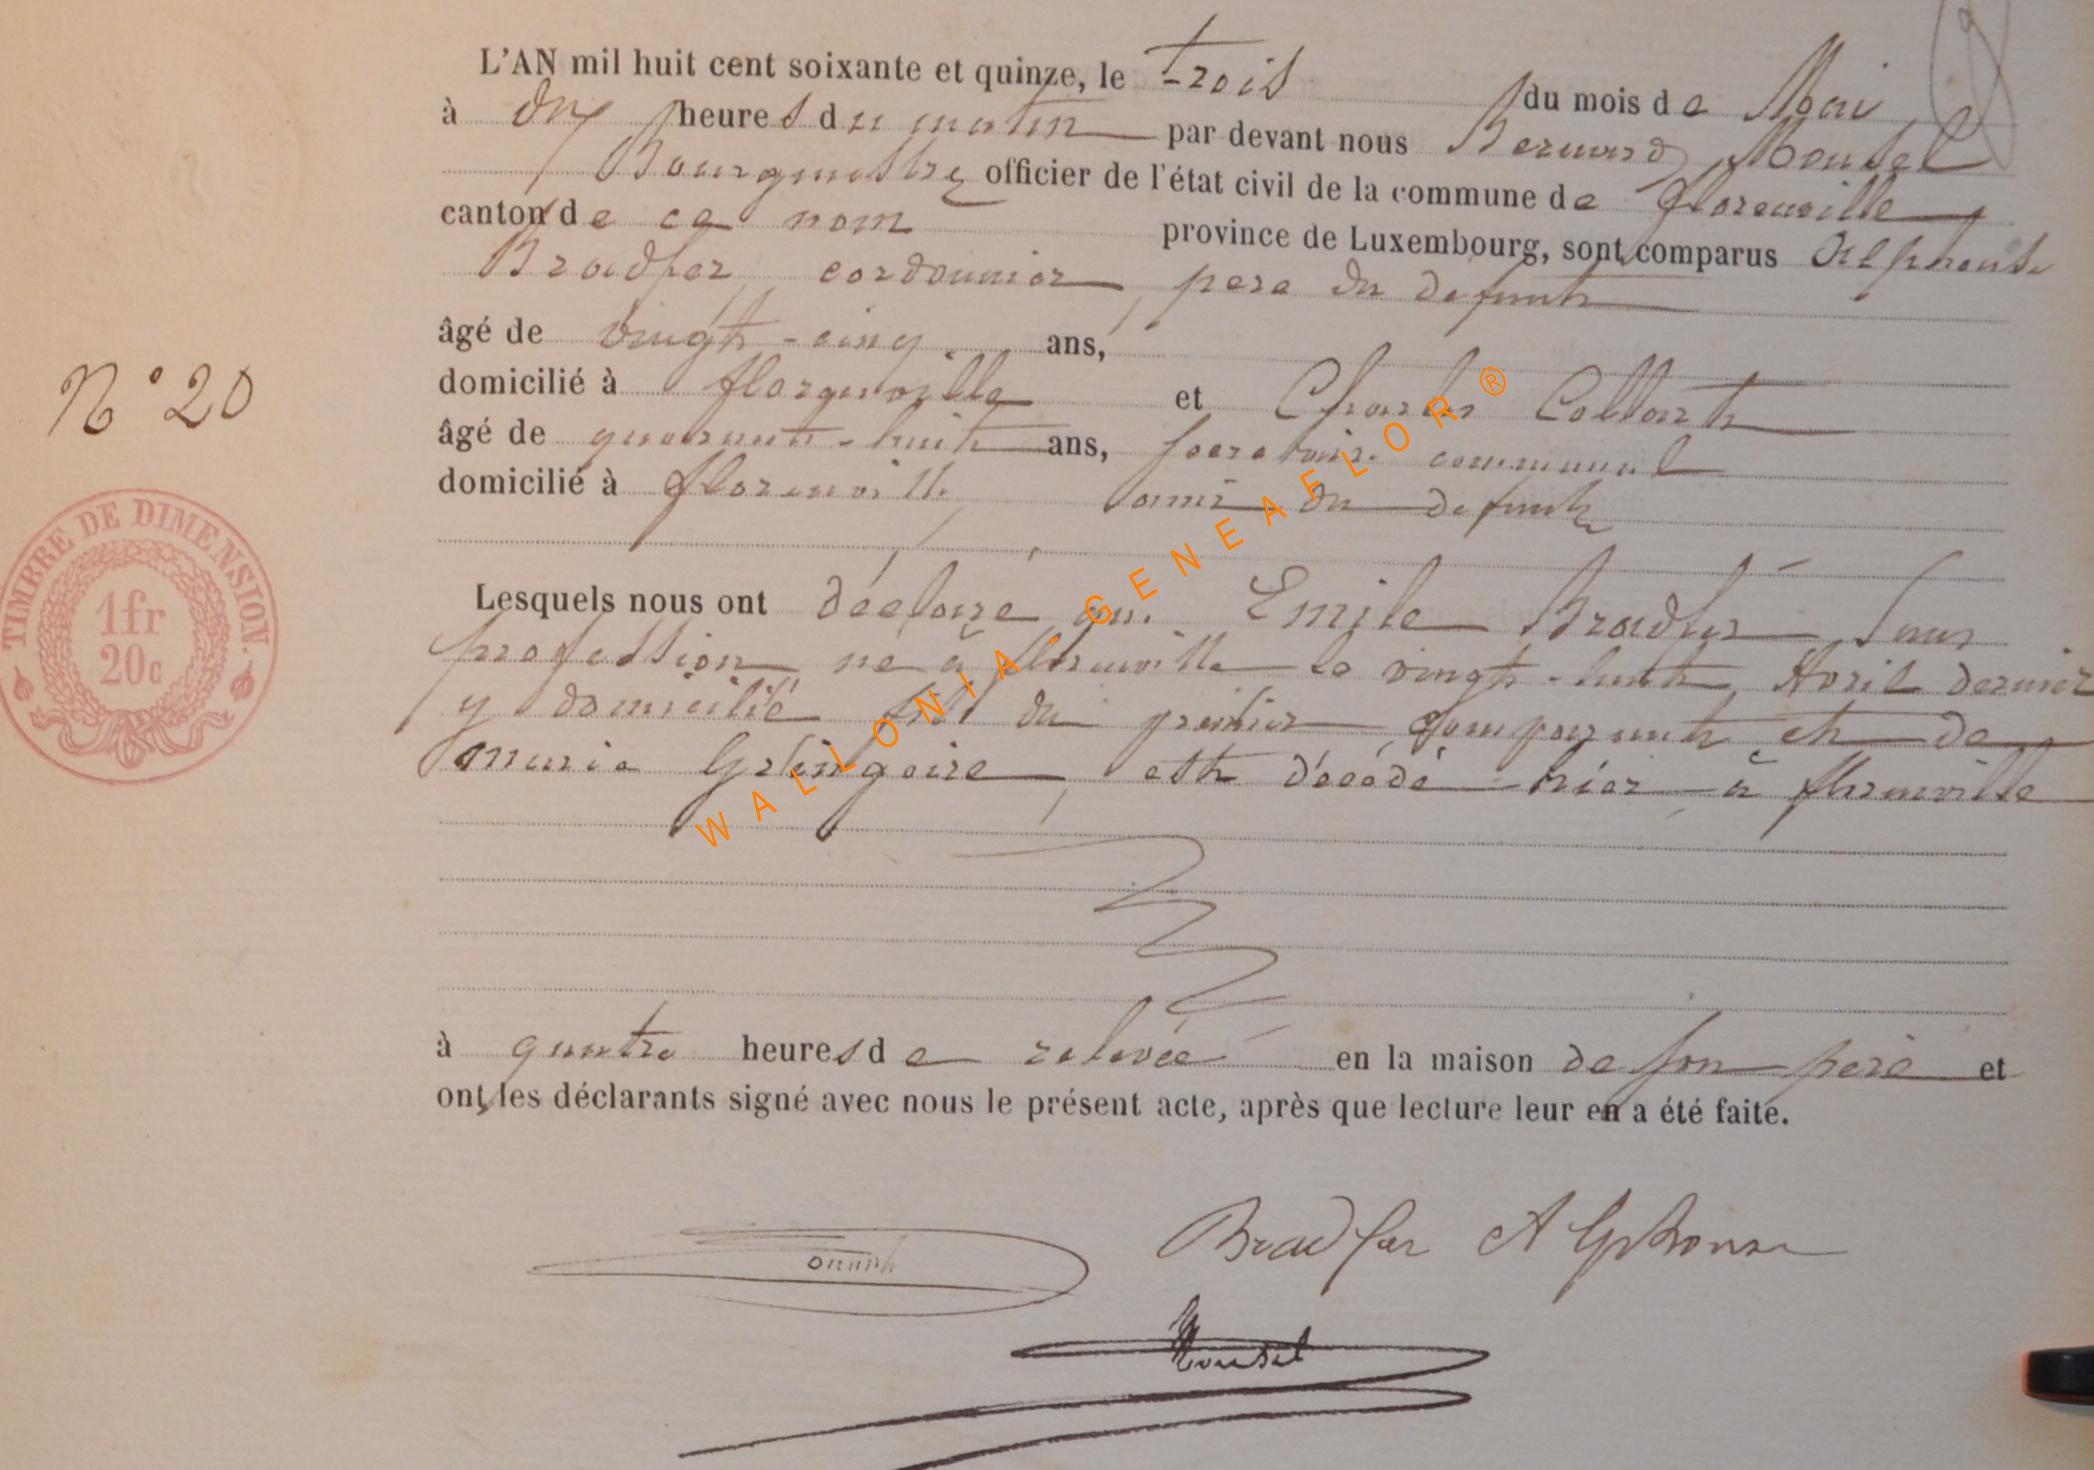 L'AN mil huit cent soixante et quinze, le trois du mois de Mai
à dix heures du matin par devant nous Bernard Mousel
Bourgmestre officier de l'état civil de la commune de florenville
canton de ce nom province de Luxembourg, sont comparus Alphonse
Bradfer, cordonnier, pere du defunt
âgé de vingt-cinq ans,
domicilié à florenville et Charles Collart
âgé de quarante-huit ans, secretaire communal
domicilié à florenville, ami du defunt
N° 20
TIMBRE DE DIMENSION.
1fr
20c
Lesquels nous ont déclaré que Emile Bradfer Sans
profession né à florenville le vingt-huit Avril dernier
y domicilié fils du premier comparant et de
marie Gringoire, est décédé hier à florenville
à quatre heures de relevée en la maison de son père et
ont, les déclarants signé avec nous le présent acte, après que lecture leur en a été faite.
Bradfer Alphonse
Mousel
WALLONIA GENEAFLOR®